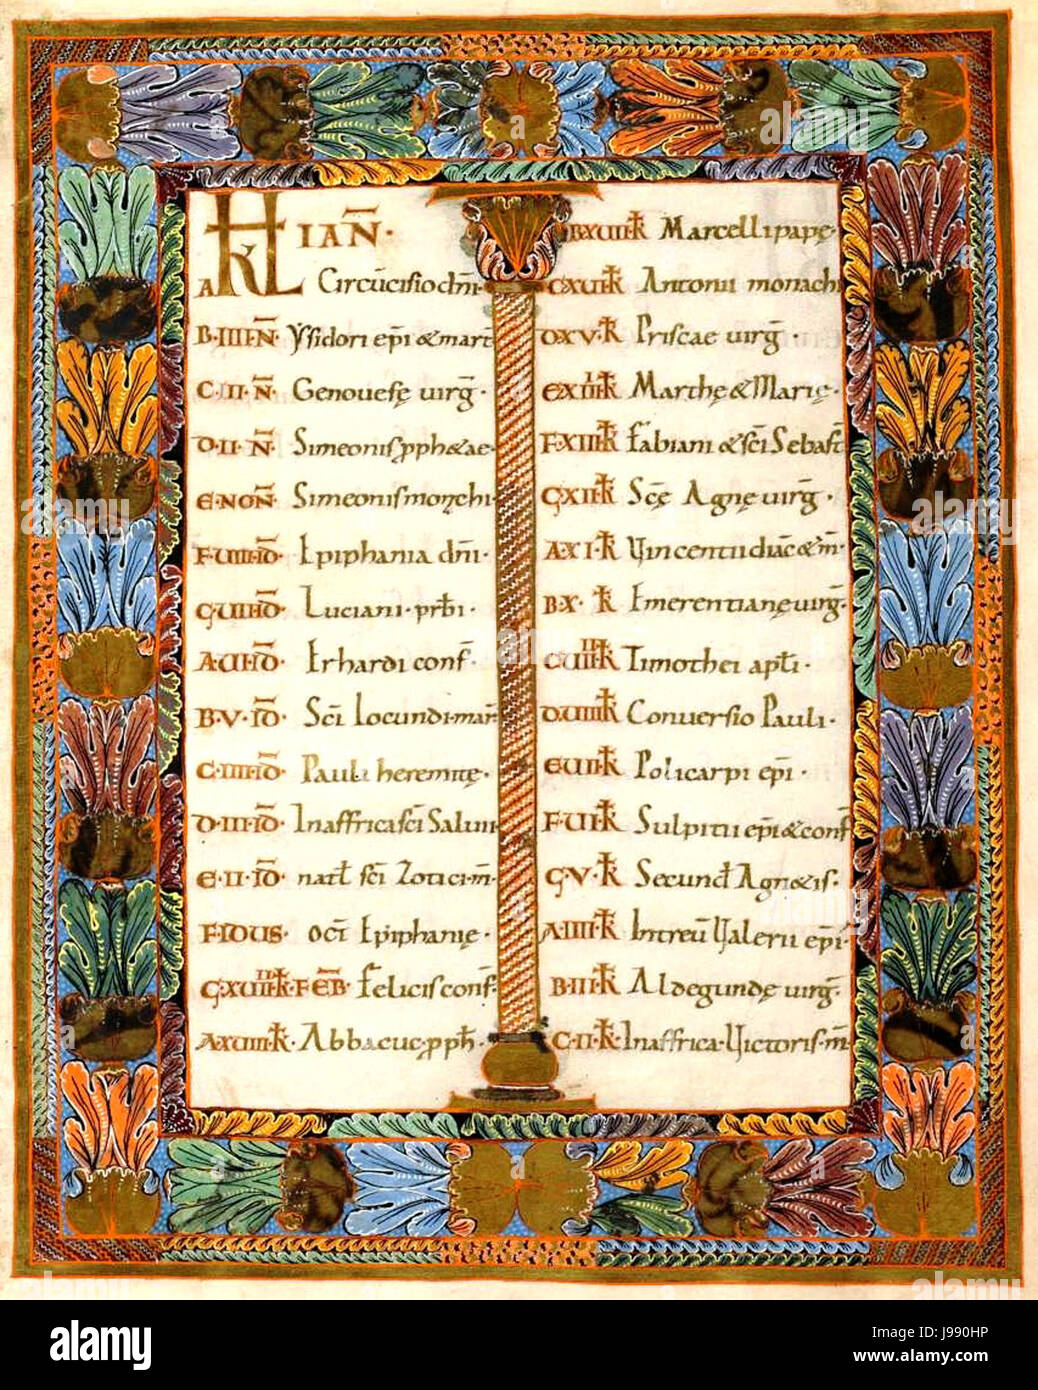 KL IAN̄.
A Circūcisio dn̄i.
B. IIII. N̄. Ysidori ep̄i & mart̄
C. III. N̄. Genovefę virḡ.
D. II. N̄. Simeonis pph&ae.
E. NON̄. Simeonis monchi.
F. VIII. ID̄. Epiphania dn̄i.
G. VII. ID̄. Luciani. prb̄i.
A. VI. ID̄. Erhardi conf̄.
B. V. ID̄. Sc̄i Iocundi. mar̄
C. IIII. ID̄. Pauli heremitę.
D. III. ID̄. In affrica sc̄i Salvii
E. II. ID̄. natł sc̄i Zotici. m̄.
F. IDUS. oct̄ Epiphanię.
G. XVIIII. k̄. FEB̄. Felicis conf̄.
A. XVIII. k̄. Abbacuc pph̄.
B. XVII. k̄ Marcelli papę.
C. XVI. k̄ Antonii monachi
D. XV. k̄ Priscae virḡ.
E. XIIII. k̄ Marthę & Marię.
F. XIII. k̄ Fabiani & sc̄i Sebast̄
G. XII. k̄ Sc̄ę Agnę virḡ.
A. XI. k̄ Vincentii diac̄ & m̄.
B. X. k̄ Emerentianę virḡ.
C. VIIII. k̄ Timothei aptł̄i.
D. VIII. k̄ Conversio Pauli.
E. VII. k̄ Policarpi ep̄i.
F. VI. k̄ Sulpitii ep̄i & conf̄
G. V. k̄ Secund̄ Agn&is.
A. IIII. k̄ In treū Valerii ep̄i.
B. III. k̄ Aldegundę virḡ.
C. II. k̄. In affrica. Victoris. m̄
alamy
Image ID: J990HP
www.alamy.com